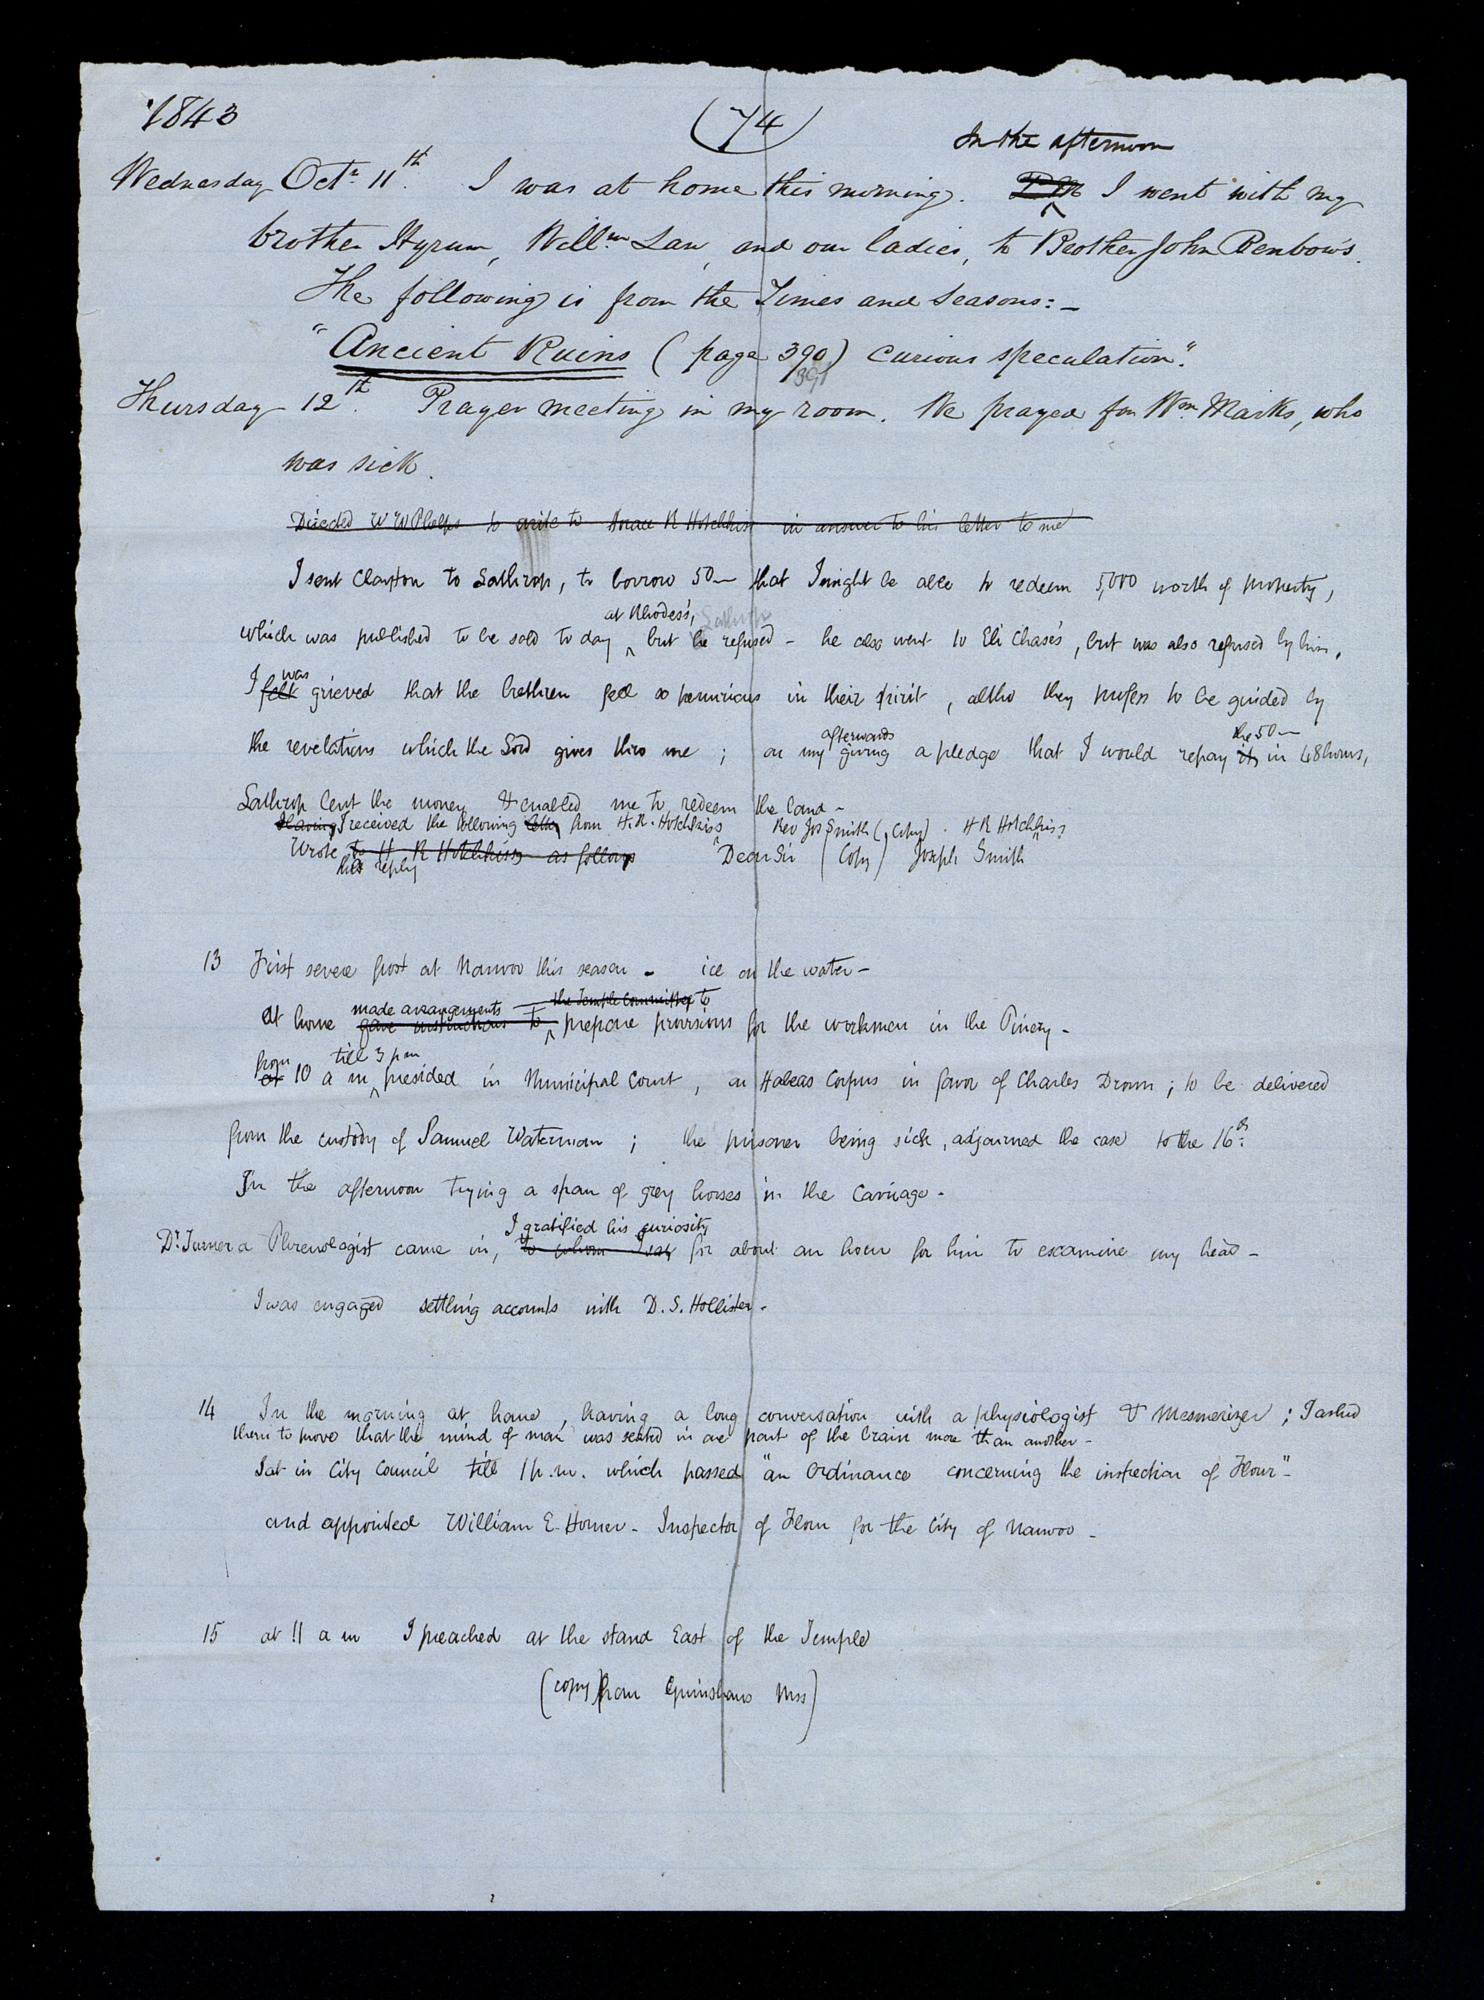 1843
(74)
In the afternoon
Wednesday Octr. 11th. I was at home this morning. P.M. I went with my
brother Hyrum, Willm Law, and our ladies, to Brother John Benbow's.
The following is from the Times and Seasons:—
"Ancient Ruins (page 390) curious speculation".
391
Thursday 12th. Prayer meeting in my room. We prayed for Wm. Marks, who
was sick.
Directed W W Phelps to write to Horace R Hotchkiss in answer to his letter to me
I sent Clayton to Lathrop, to borrow 50— that I might be able to redeem 5,000 worth of property,
at Rhodes's, Lathrop
which was published to be sold to day ^ but he refused – he also went to Eli Chase's, but was also refused by him.
was
I felt grieved that the brethren feel so penurious in their spirit, altho they profess to be guided by
afterwards the 50—
the revelations which the Lord gives thro me; on my giving a pledge that I would repay it in 48 hours,
Lathrop lent the money & enabled me to redeem the land –
Having I received the following letter from H. R. Hotchkiss Rev Jos Smith (Copy). H R Hotchkiss
Wrote to H R Hotchkiss as follows "Dear Sir (Copy) Joseph Smith"
this reply
13 First severe frost at Nauvoo this season – ice on the water –
made arrangements the Temple Committee to
At home gave instructions to ^ prepare provisions for the workmen in the Pinery –
from till 3 pm
at 10 a m ^ presided in Municipal Court, on Habeas Corpus in favor of Charles Drown; to be delivered
from the custody of Samuel Waterman; the prisoner being sick, adjourned the case to the 16th.
In the afternoon trying a span of grey horses in the Carriage –
I gratified his curiosity
Dr. Turner a Phrenologist came in, to whom I sat for about an hour for him to examine my head –
I was engaged settling accounts with D. S. Hollister –
14 In the morning at home, having a long conversation with a physiologist & Mesmerizer; I asked
them to prove that the mind of man was seated in one part of the brain more than another –
Sat in City Council till 1 p.m. which passed "an Ordinance concerning the inspection of Flour" –
and appointed William E. Horner – Inspector of Flour for the City of Nauvoo –
15 at 11 a m I preached at the stand East of the Temple
(copy) from Grimshaws Mss)